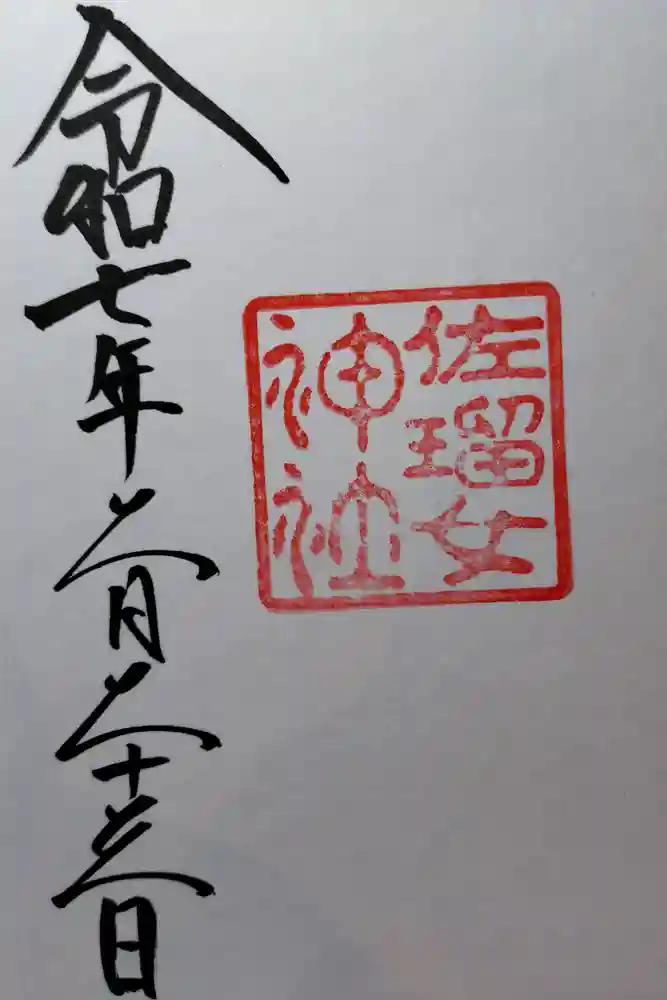 佐瑠女
神社
令和七年二月二十三日